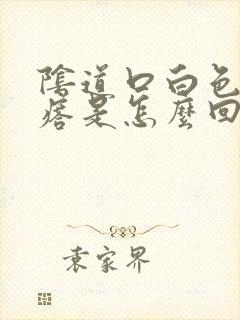 陰道口白色
痞是怎麼回
袁家界